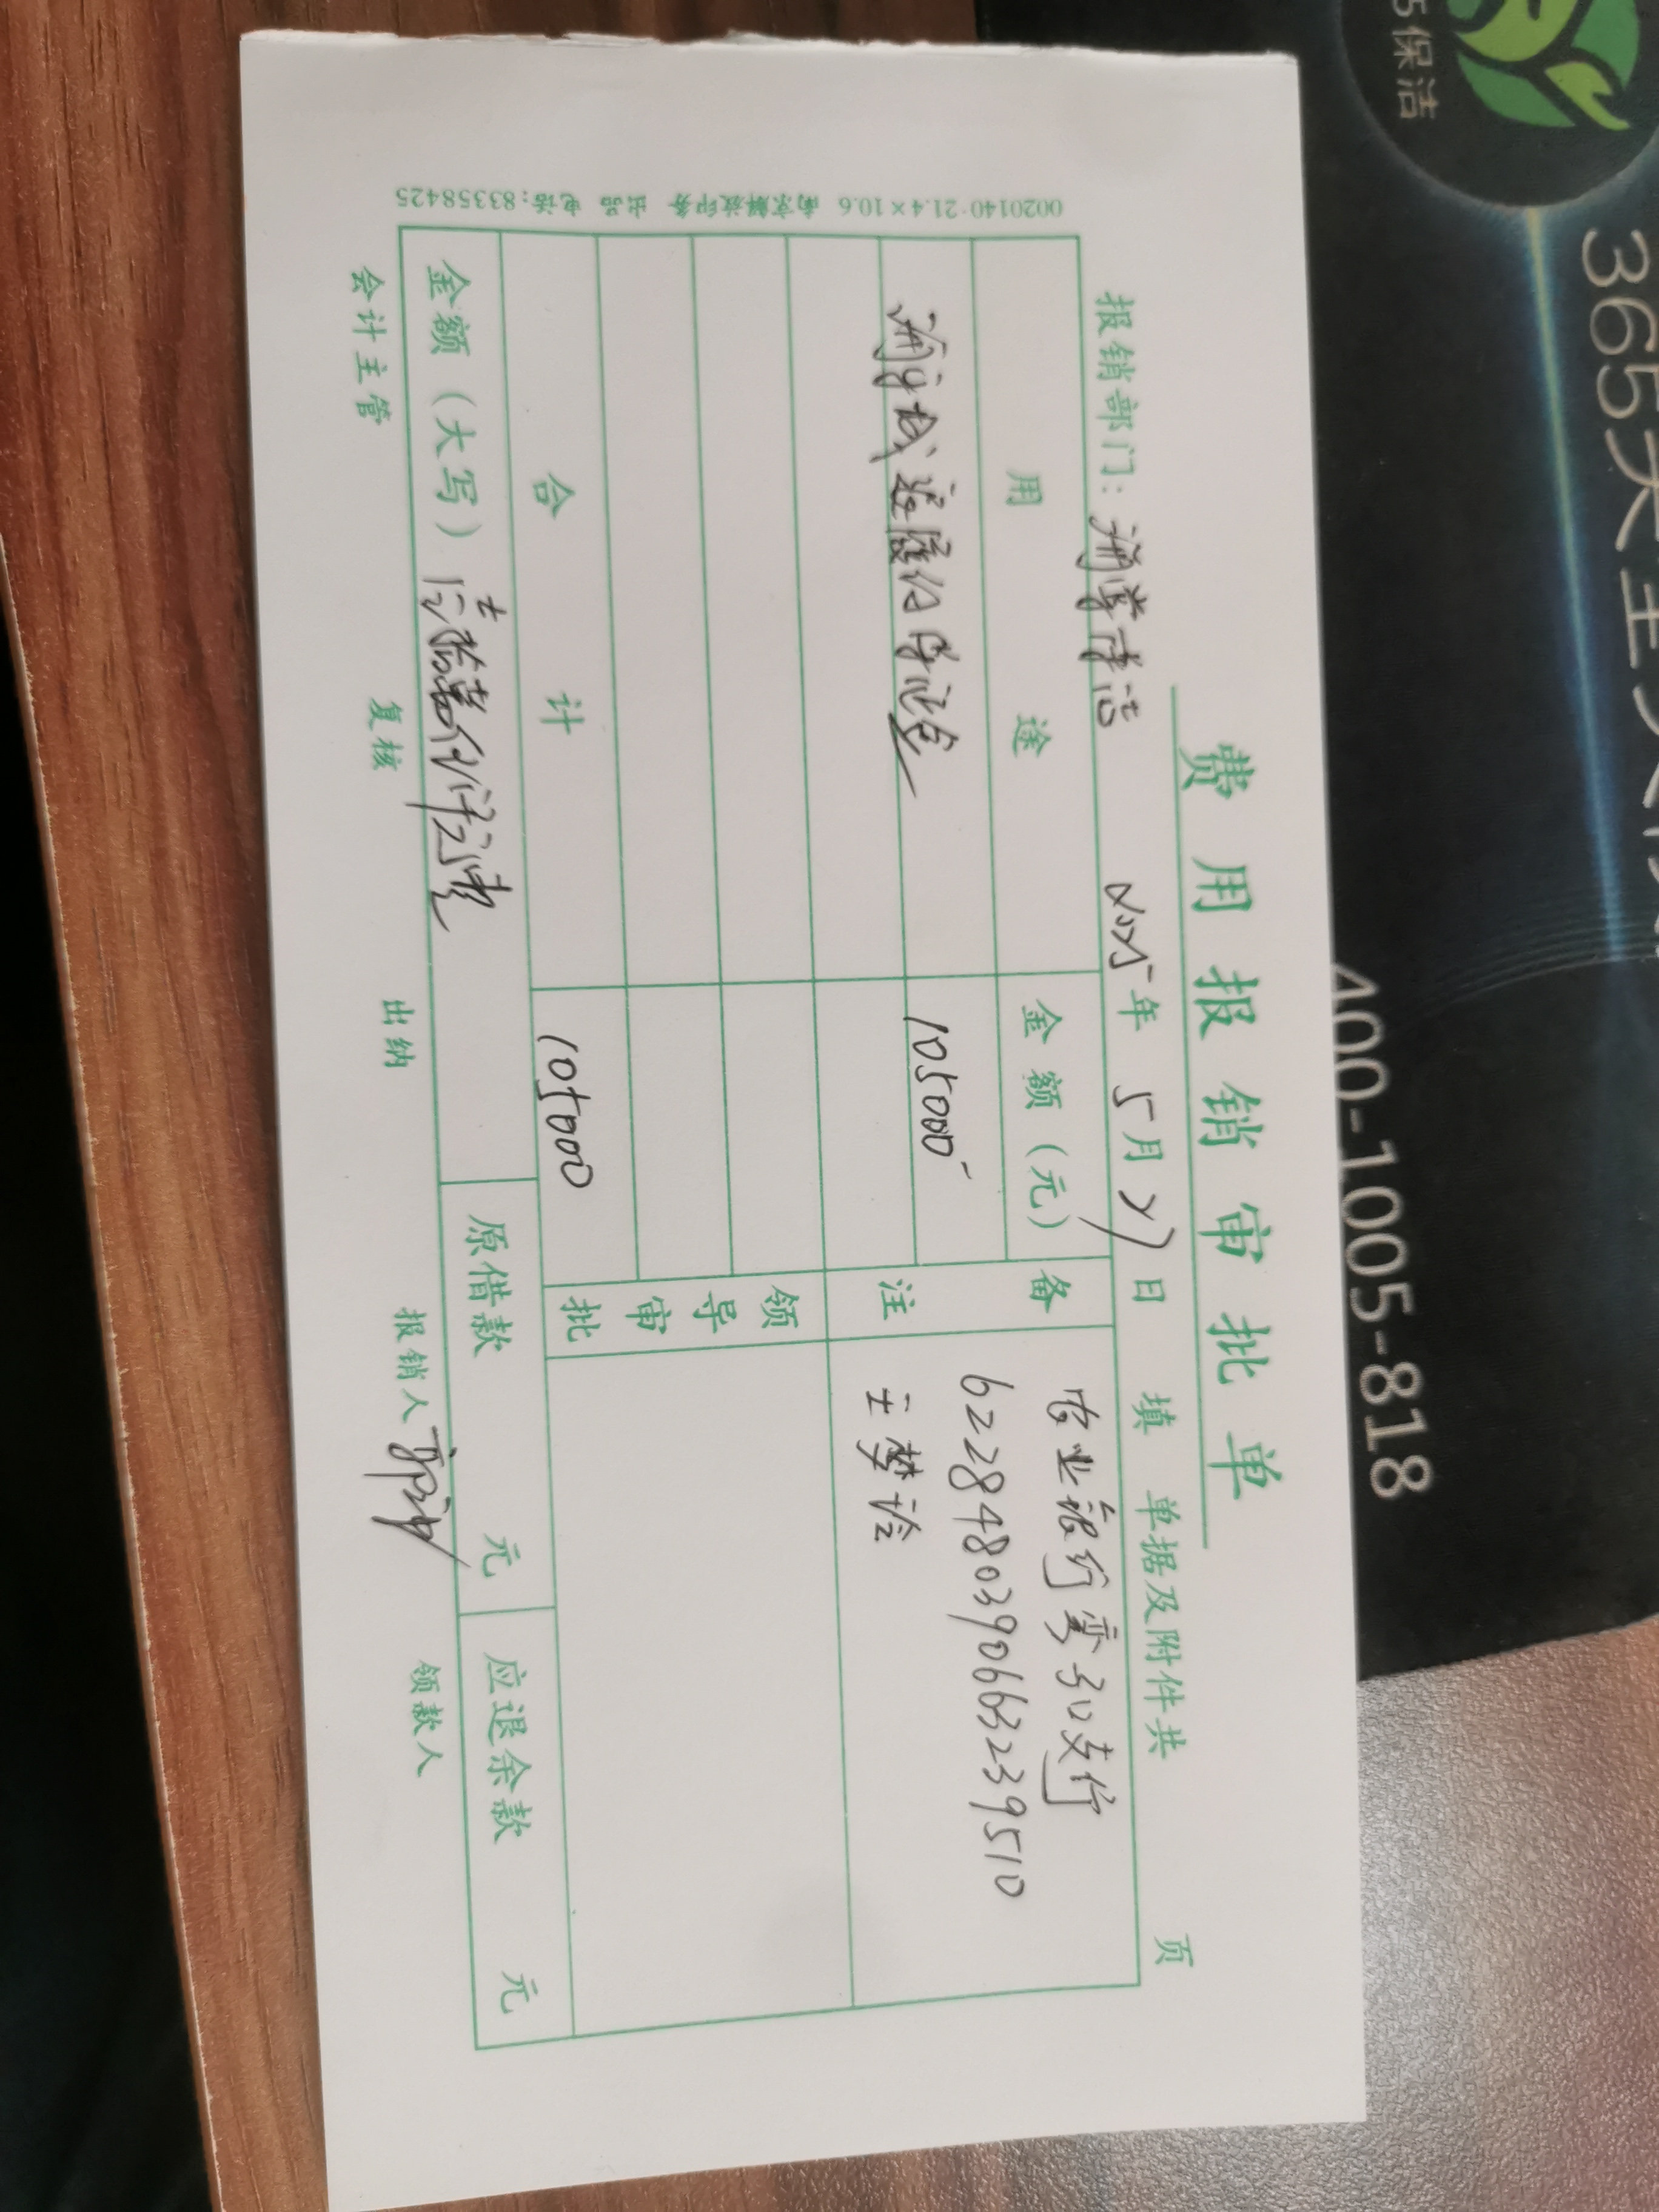 费用报销审批单
报销部门: 浦掌清洁 2025年5月27日 填 单据及附件共 页
用途 金额(元) 备注
农业银行雯钇支行
6228480390663239510
王梦诠
105000
领导审批
合计 105000
金额(大写) 壹拾万伍仟元整 原借款 元 应退余款 元
会计主管 复核 出纳 报销人 领款人
0020140·21.4×10.6 南京解放印务 出品 电话:83358425
5保洁
365天
400-1005-818